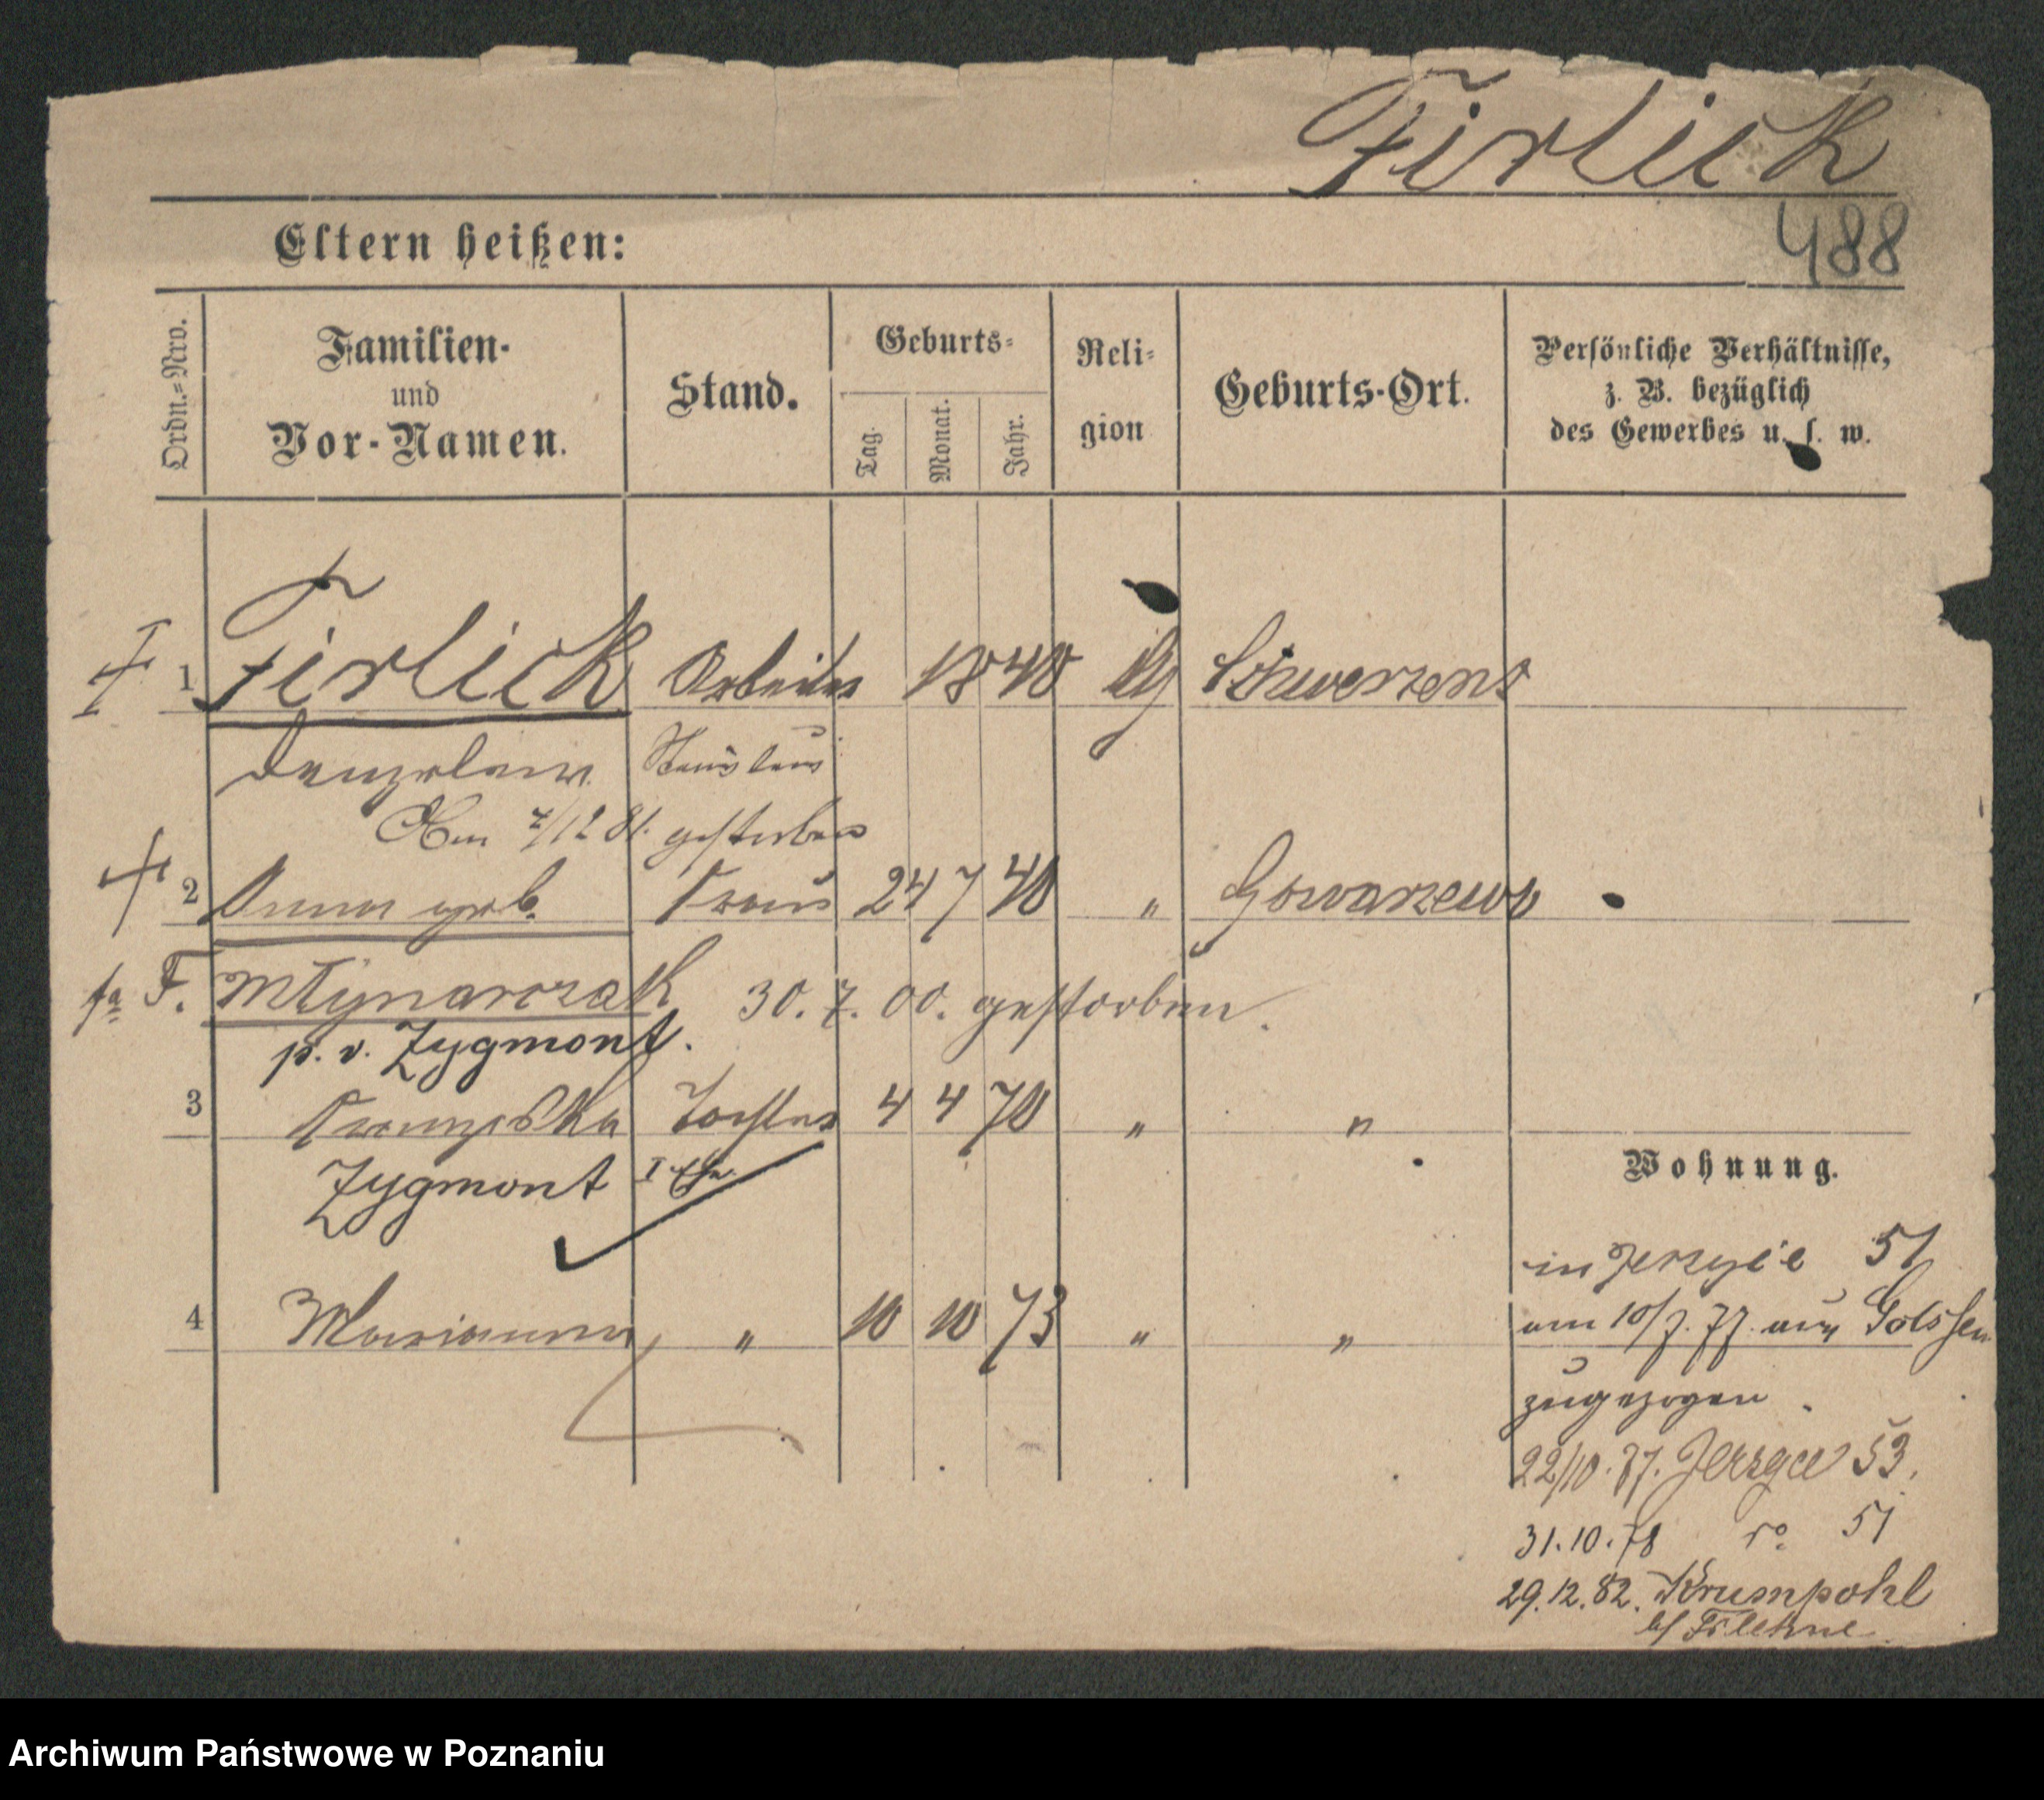 Firlick
488
Eltern heißen:
Ordn.=Nro.
Familien-
und
Vor-Namen.
Stand.
Geburts=
Tag.
Monat.
Jahr.
Reli=
gion
Geburts-Ort.
Persönliche Verhältnisse,
z. B. bezüglich
des Gewerbes u. s. w.
1 Firlick Arbeiter 1840 Schwersenz
Stanislaus
7/12 81. gestorben
2 Anna geb. Frau 24 7 40 " Gowarzewo
F. Młynarczak 30. 7. 00. gestorben.
p. v. Zygmont.
3 Franziska Tochter 4 4 70 " "
Zygmont I Ehe
Wohnung.
in Jerzyce 51
4 Marianna " 10 10 73 " "
am 10/7. 77. aus
zugezogen.
22/10. 77. Jerzyce 53.
31.10.78 51
29.12.82. Krumpohl
b/ Filehne
Archiwum Państwowe w Poznaniu